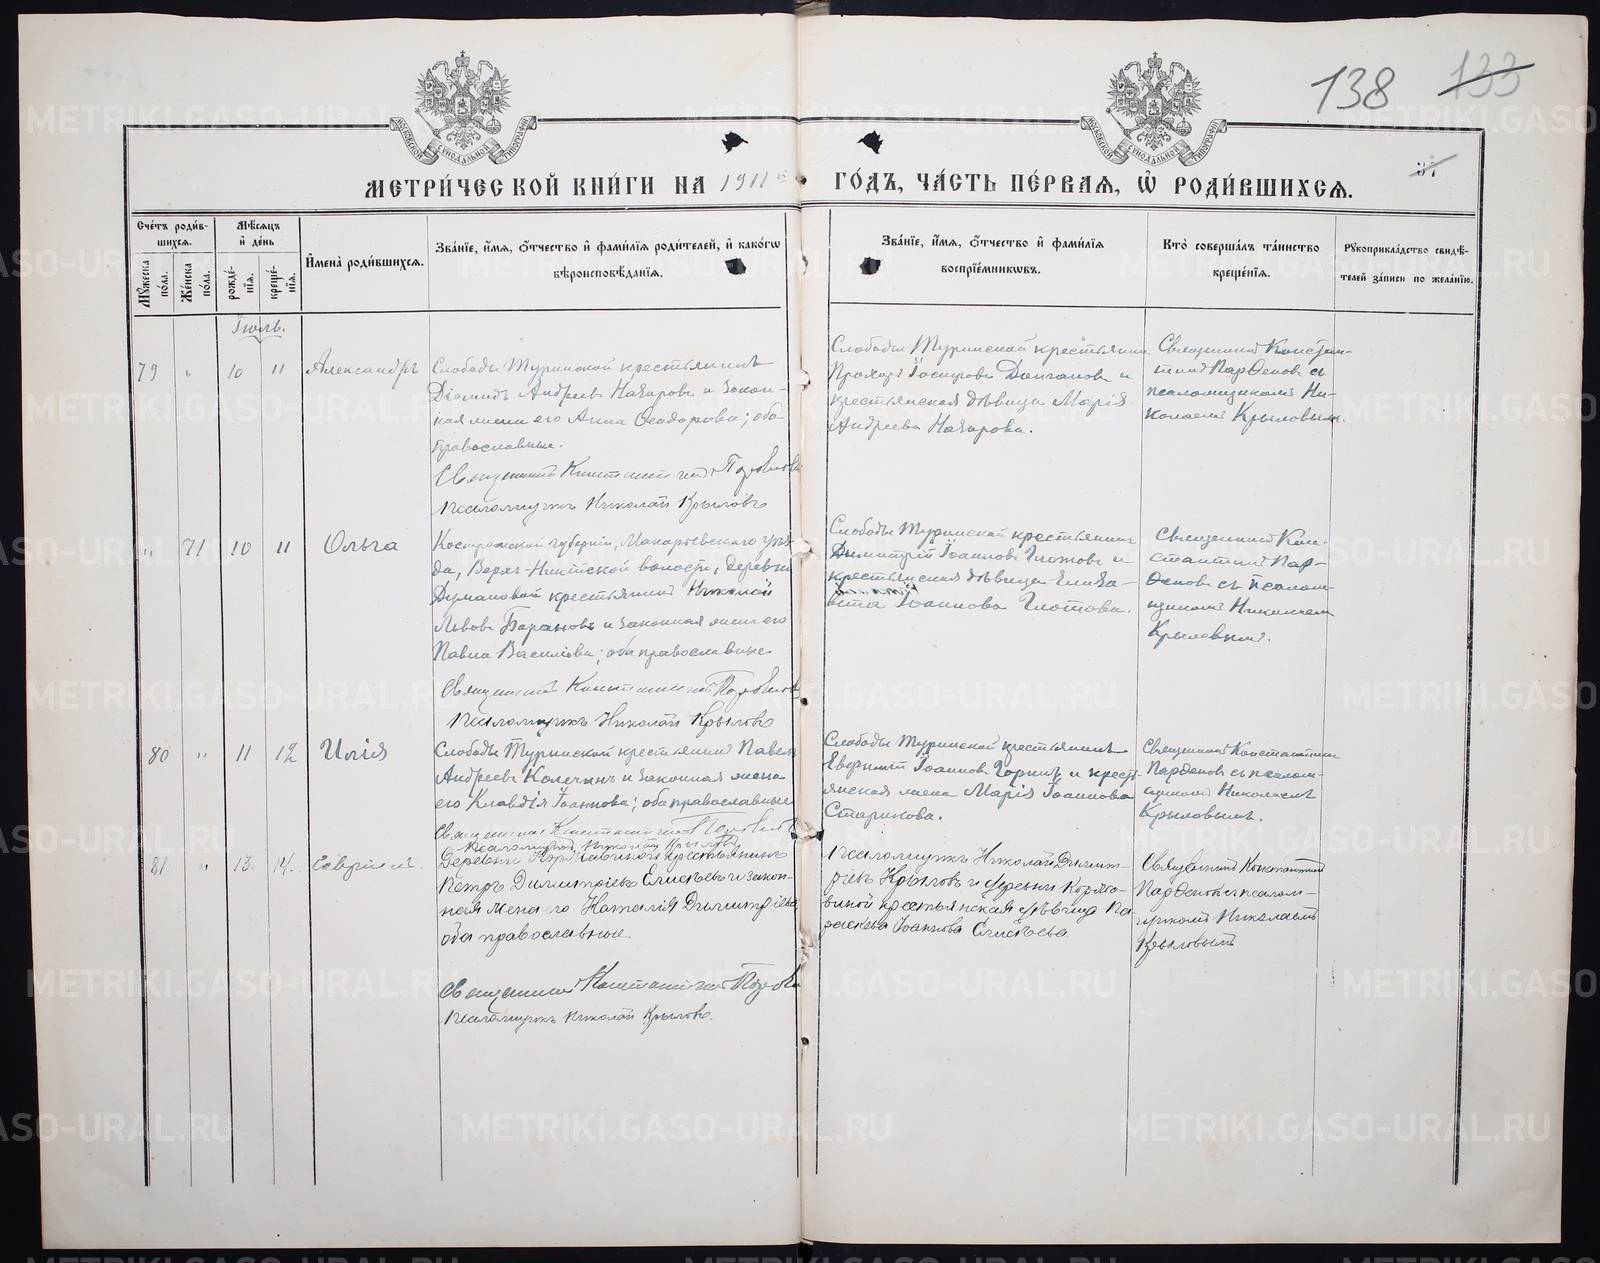 138 133
МЕТРИ́ЧЕСКОЙ КНИ́ГИ НА 1911 ГО́ДЪ, ЧА́СТЬ ПЕ́РВАѦ, Ѿ РОДИ́ВШИХСѦ.
37
Сче́тъ роди́вшихсѧ.
Мꙋ́жеска по́ла.
Же́нска по́ла.
Мѣ́сѧцъ и҆ де́нь
рожде́нїѧ.
креще́нїѧ.
И҆мена̀ роди́вшихсѧ.
Зва́нїе, и҆́мѧ, ѻ҆́тчество и҆ фами́лїѧ роди́телей, и҆ како́гѡ
вѣроисповѣ́данїѧ.
Зва́нїе, и҆́мѧ, ѻ҆́тчество и҆ фами́лїѧ
воспрїе́мникѡвъ.
Кто̀ соверша́лъ та́инство
креще́нїѧ.
Рꙋкоприкла́дство свидѣ́-
телей за́писи по жела́нїю.
Іюль.
79 " 10 11 Александръ
Слободы Туринской крестьянинъ
Діомидъ Андреевъ Назаровъ и закон-
ная жена его Анна Ѳеодорова; оба
православные.
Священникъ Константинъ Парѳеновъ
Псаломщикъ Николай Крыловъ
Слободы Туринской крестьянинъ
Прохоръ и
крестьянская дѣвица Марія
Андреева Назарова.
Священникъ Констан-
тинъ Парѳеновъ съ
псаломщикомъ Ни-
колаемъ Крыловымъ.
" 71 10 11 Ольга
Костромской губерніи, Макарьевскаго уѣз-
да, волости, деревни
Думановой крестьянинъ Николай
Львовъ Барановъ и законная жена его
Павла Васильева; оба православные
Священникъ Константинъ Парѳеновъ
Псаломщикъ Николай Крыловъ
Слободы Туринской крестьянинъ
Димитрій Іоанновъ Глотовъ и
крестьянская дѣвица Елиза-
вета Іоаннова Глотова.
Священникъ Кон-
стантинъ Пар-
ѳеновъ съ псалом-
щикомъ Николаемъ
Крыловымъ.
80 " 11 12 Илія
Слободы Туринской крестьянинъ Павелъ
Андреевъ Колечинъ и законная жена
его Клавдія Іоаннова; оба православные
Священникъ Константинъ Парѳеновъ
Псаломщикъ Николай Крыловъ
Слободы Туринской крестьянинъ
Іоанновъ и кресть-
янская жена Марія Іоаннова
Старикова.
Священникъ Константинъ
Парѳеновъ съ псалом-
щикомъ Николаемъ
Крыловымъ.
81 " 13 14.
Деревни Коржавиной крестьянинъ
Петръ Димитріевъ Елисѣевъ и закон-
ная жена его Наталія Димитріева
оба православные.
Священникъ Константинъ Парѳеновъ
Псаломщикъ Николай Крыловъ.
Псаломщикъ Николай Димит-
ріевъ Крыловъ и деревни Коржа-
виной крестьянская дѣвица Па-
раскева Іоаннова Елисѣева
Священникъ Константинъ
Парѳеновъ съ псалом-
щикомъ Николаемъ
Крыловымъ
METRIKI.GASO-URAL.RU